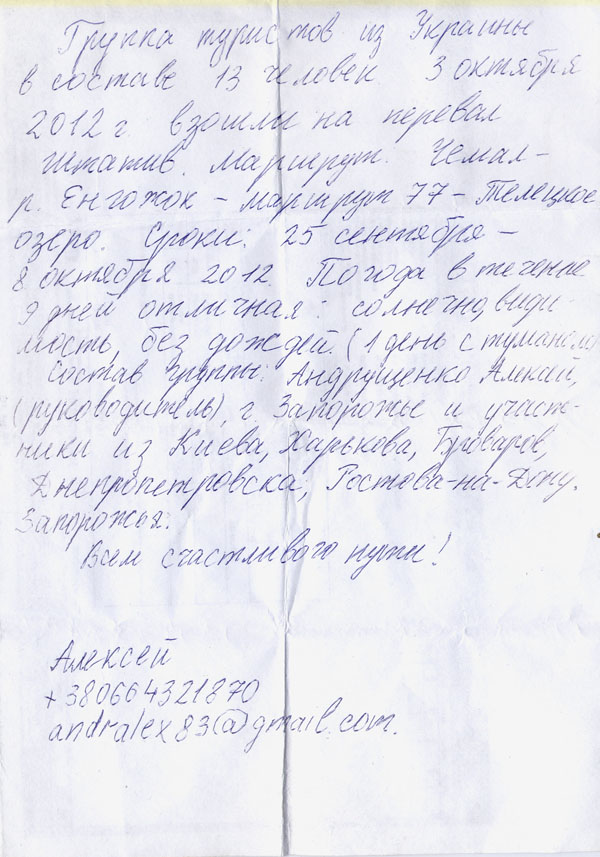 Группа туристов из Украины
в составе 13 человек 3 октября
2012 г. взошли на перевал
Штатив. Маршрут: Чемал -
р. Енгожок - маршрут 77 - Телецкое
озеро. Сроки: 25 сентября -
8 октября 2012. Погода в течение
9 дней отличная: солнечно, види-
мость, без дождей. (1 день с туманом)
Состав группы: Андрущенко Алексей,
(руководитель), г. Запорожье и участ-
ники из Киева, Харькова, Броваров,
Днепропетровска, Ростова-на-Дону,
Запорожья.
Всем счастливого пути!
Алексей
+380664321870
andralex83@gmail.com.